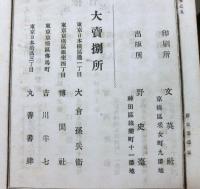 印刷所
京橋區采女町九番地
文英社
出版所
神田區錦町十一番地
野史臺
大賣捌所
東京日本橋區通一丁目
大倉孫兵衛
東京京橋區銀座四丁目
博聞社
東京京橋區南傳馬町
吉川半七
東京日本橋區三丁目
丸善書肆